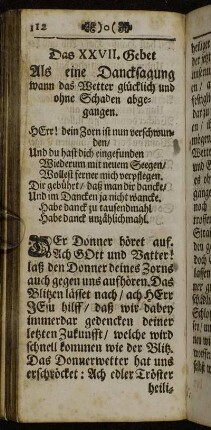 112 )o(
Das XXVII. Gebet
Als eine Dancksagung
wann das Wetter glücklich und
ohne Schaden abge-
gangen.
HErr! dein Zorn ist nun verschwun-
den/
Und du hast dich eingefunden
Wiederum mit neuem Seegen/
Wollest ferner mich verpflegen.
Dir gebührt/ daß man dir dancke/
Und im Dancken ja nicht wancke.
Habe danck zu tausendmahl
Habe danck unzählichmahl.
DEr Donner höret auf.
Ach GOtt und Vatter!
laß den Donner deines Zorns
auch gegen uns aufhören. Das
Blitzen lässet nach/ ach HErr
JEsu hilff/ daß wir dabey
immerdar gedencken deiner
letzten Zukunfft/ welche wird
schnell kommen wie der Blitz.
Das Donnerwetter hat uns
erschröcket: Ach edler Tröster
heili-